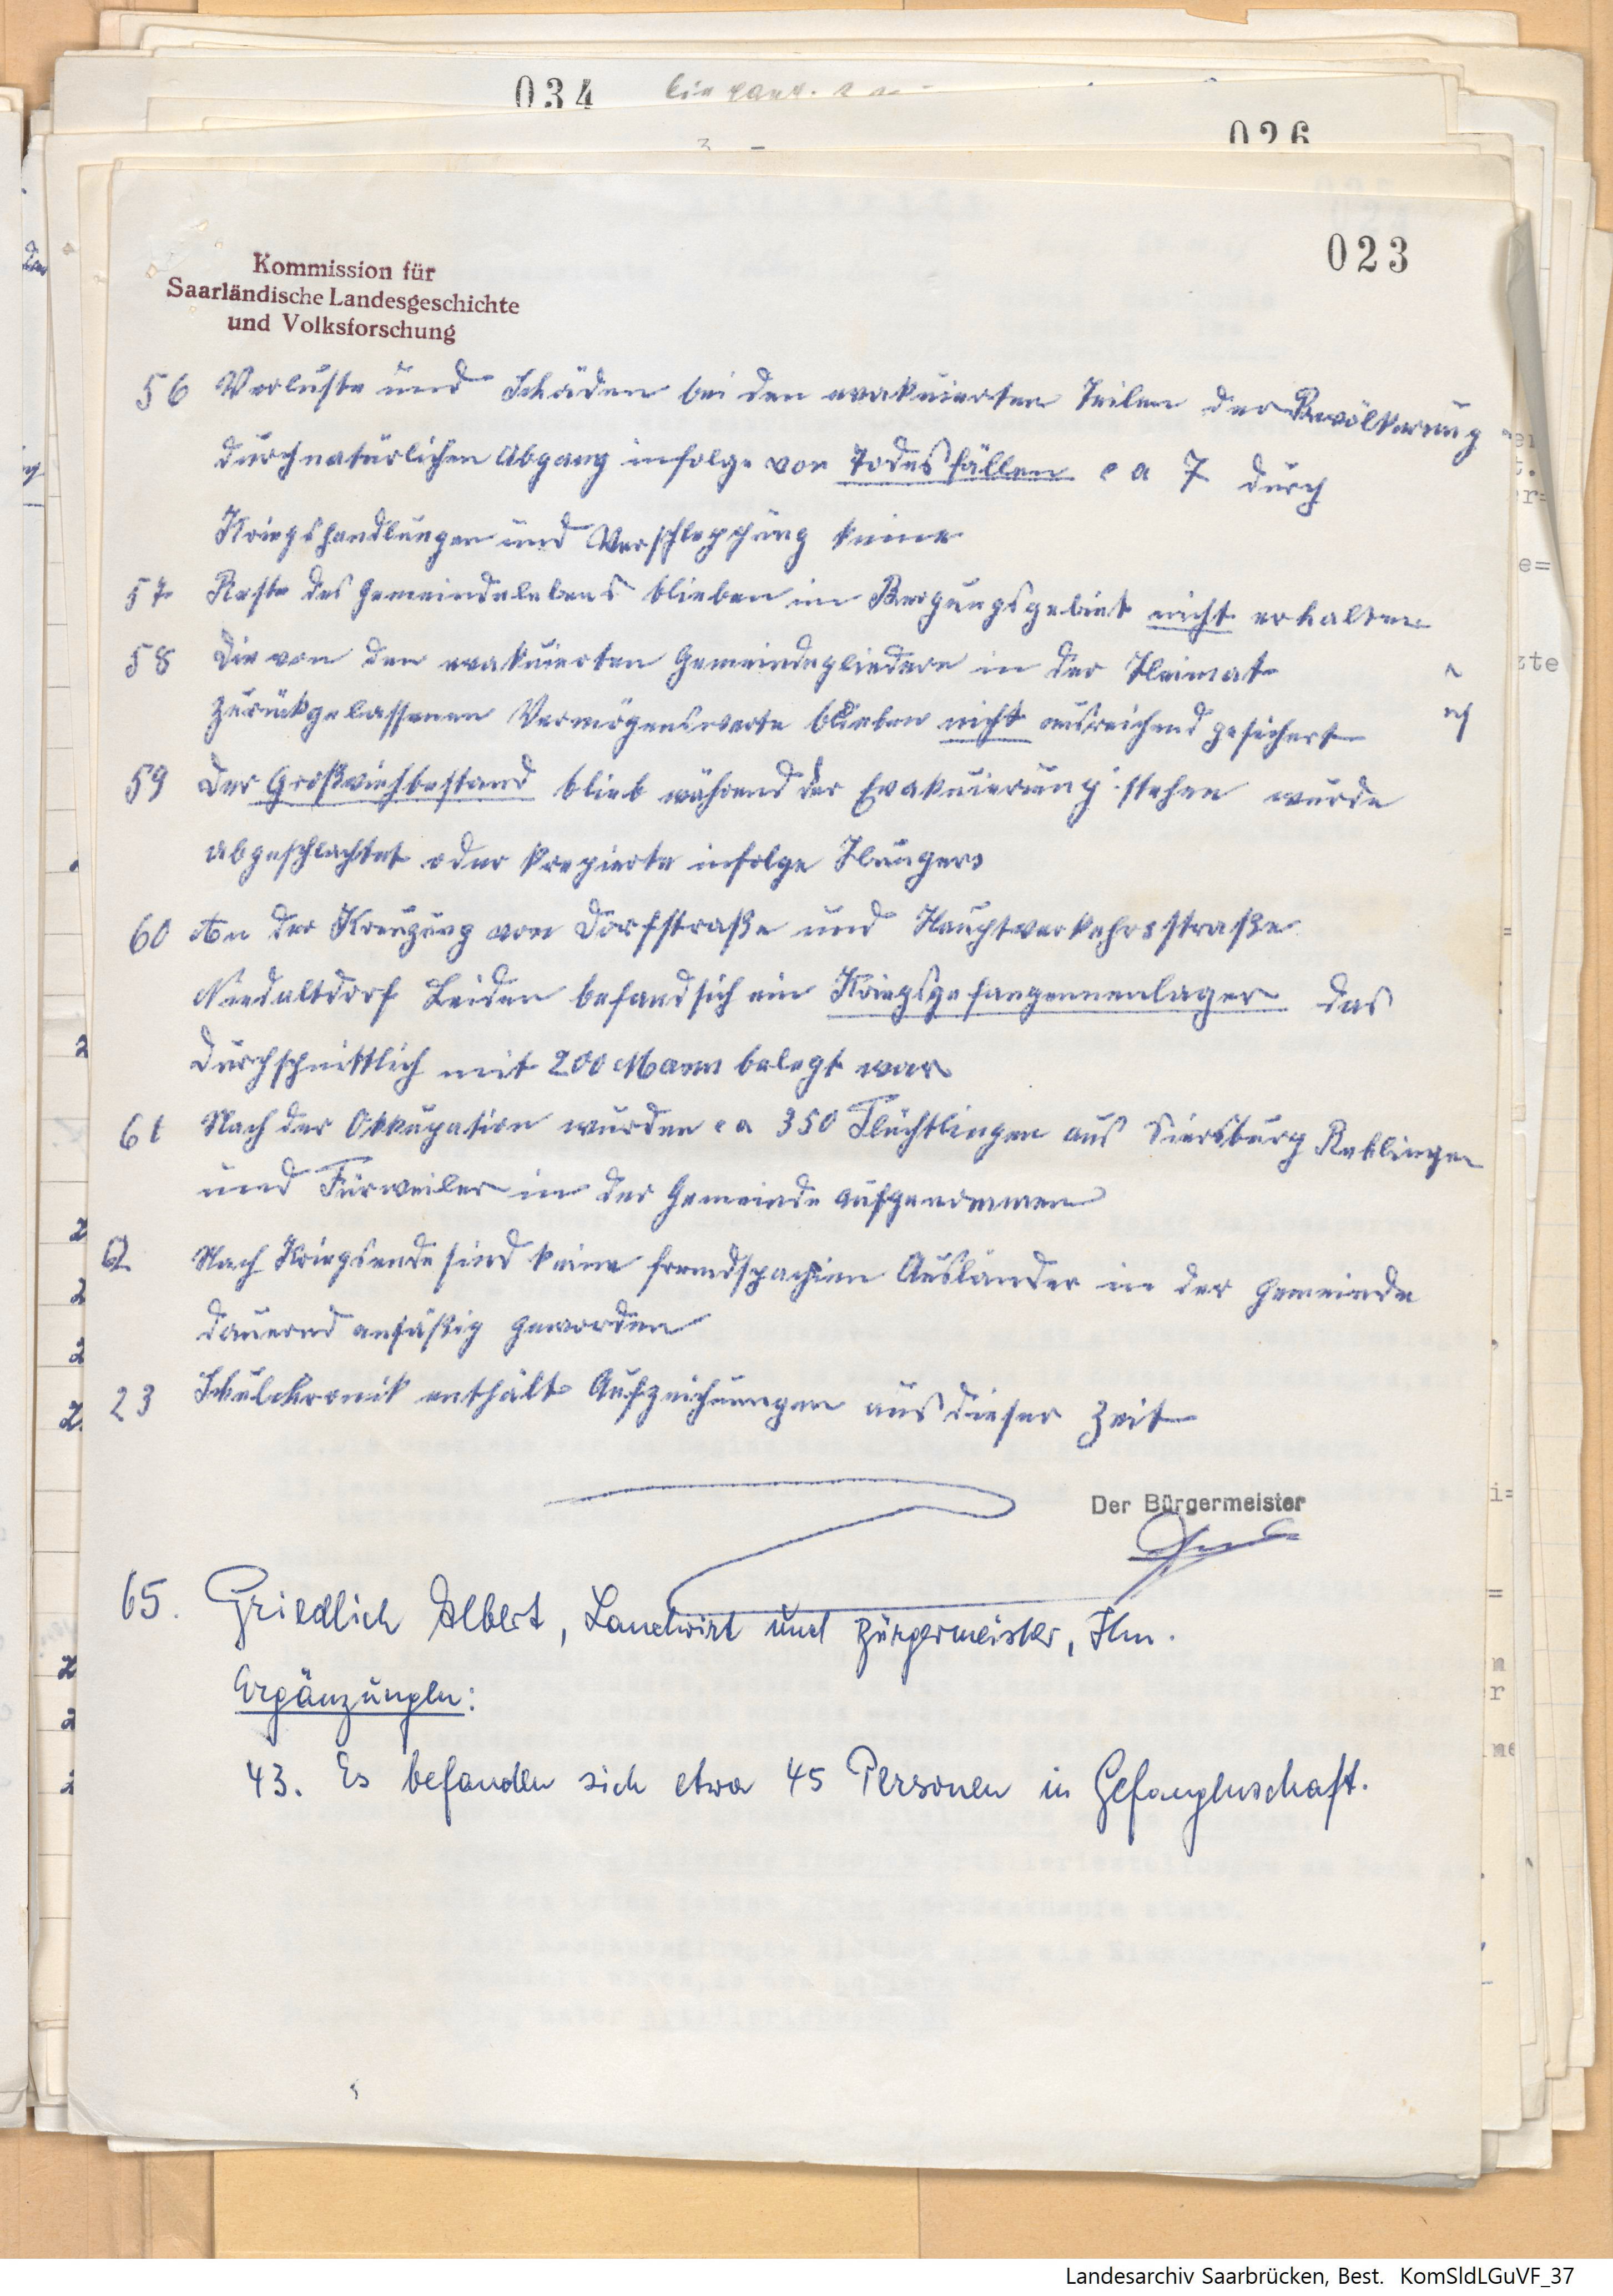 034
026
023
Kommission für
Saarländische Landesgeschichte
und Volksforschung
56 Verluste und Schäden bei den evakuierten Teilen der Bevölkerung
durch natürlichen Abgang infolge von Todesfällen ca 7 durch
Kriegshandlungen und Verschleppung keine
57 Reste des Gemeindelebens blieben im Bergungsgebiet nicht erhalten
58 Die von den evakuierten Gemeindegliedern in der Heimat
zurückgelassenen Vermögenswerte blieben nicht ausreichend gesichert
59 Der Großviehbestand blieb während der Evakuierung stehen wurde
abgeschlachtet oder krepierte infolge Hungers
60 An der Kreuzung von Dorfstraße und Hauptverkehrsstraße
Niedaltdorf Leiden befand sich ein Kriegsgefangenenlager das
durchschnittlich mit 200 Mann belegt war
61 Nach der Okkupation wurden ca 350 Flüchtlingen aus Siersburg Rehlingen
und Fürweiler in der Gemeinde aufgenommen
62 Nach Kriegsende sind keine fremdspachien Ausländer in der Gemeinde
dauernd ansäßig geworden
23 Schulchronik enthält Aufzeichnungen aus dieser Zeit
Der Bürgermeister
65. Griedlich Albert, Landwirt und Bürgermeister, Ihn.
Ergänzungen:
43. Es befanden sich etwa 45 Personen in Gefangenschaft.
Landesarchiv Saarbrücken, Best. KomSldLGuVF_37